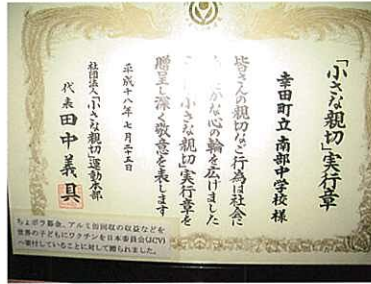 「小さな親切」実行章
幸田町立 南部中学校 様
皆さんの親切な行為は社会に
かな心の輪を広げました
小さな親切」実行章を
贈呈し深く敬意を表します
平成十八年七月二十五日
社団法人「小さな親切」運動本部
代表 田中義具
ちょボラ募金、アルミ缶回収の収益などを
世界の子どもにワクチンを日本委員会(JCV)
へ寄付していることに対して贈られました。